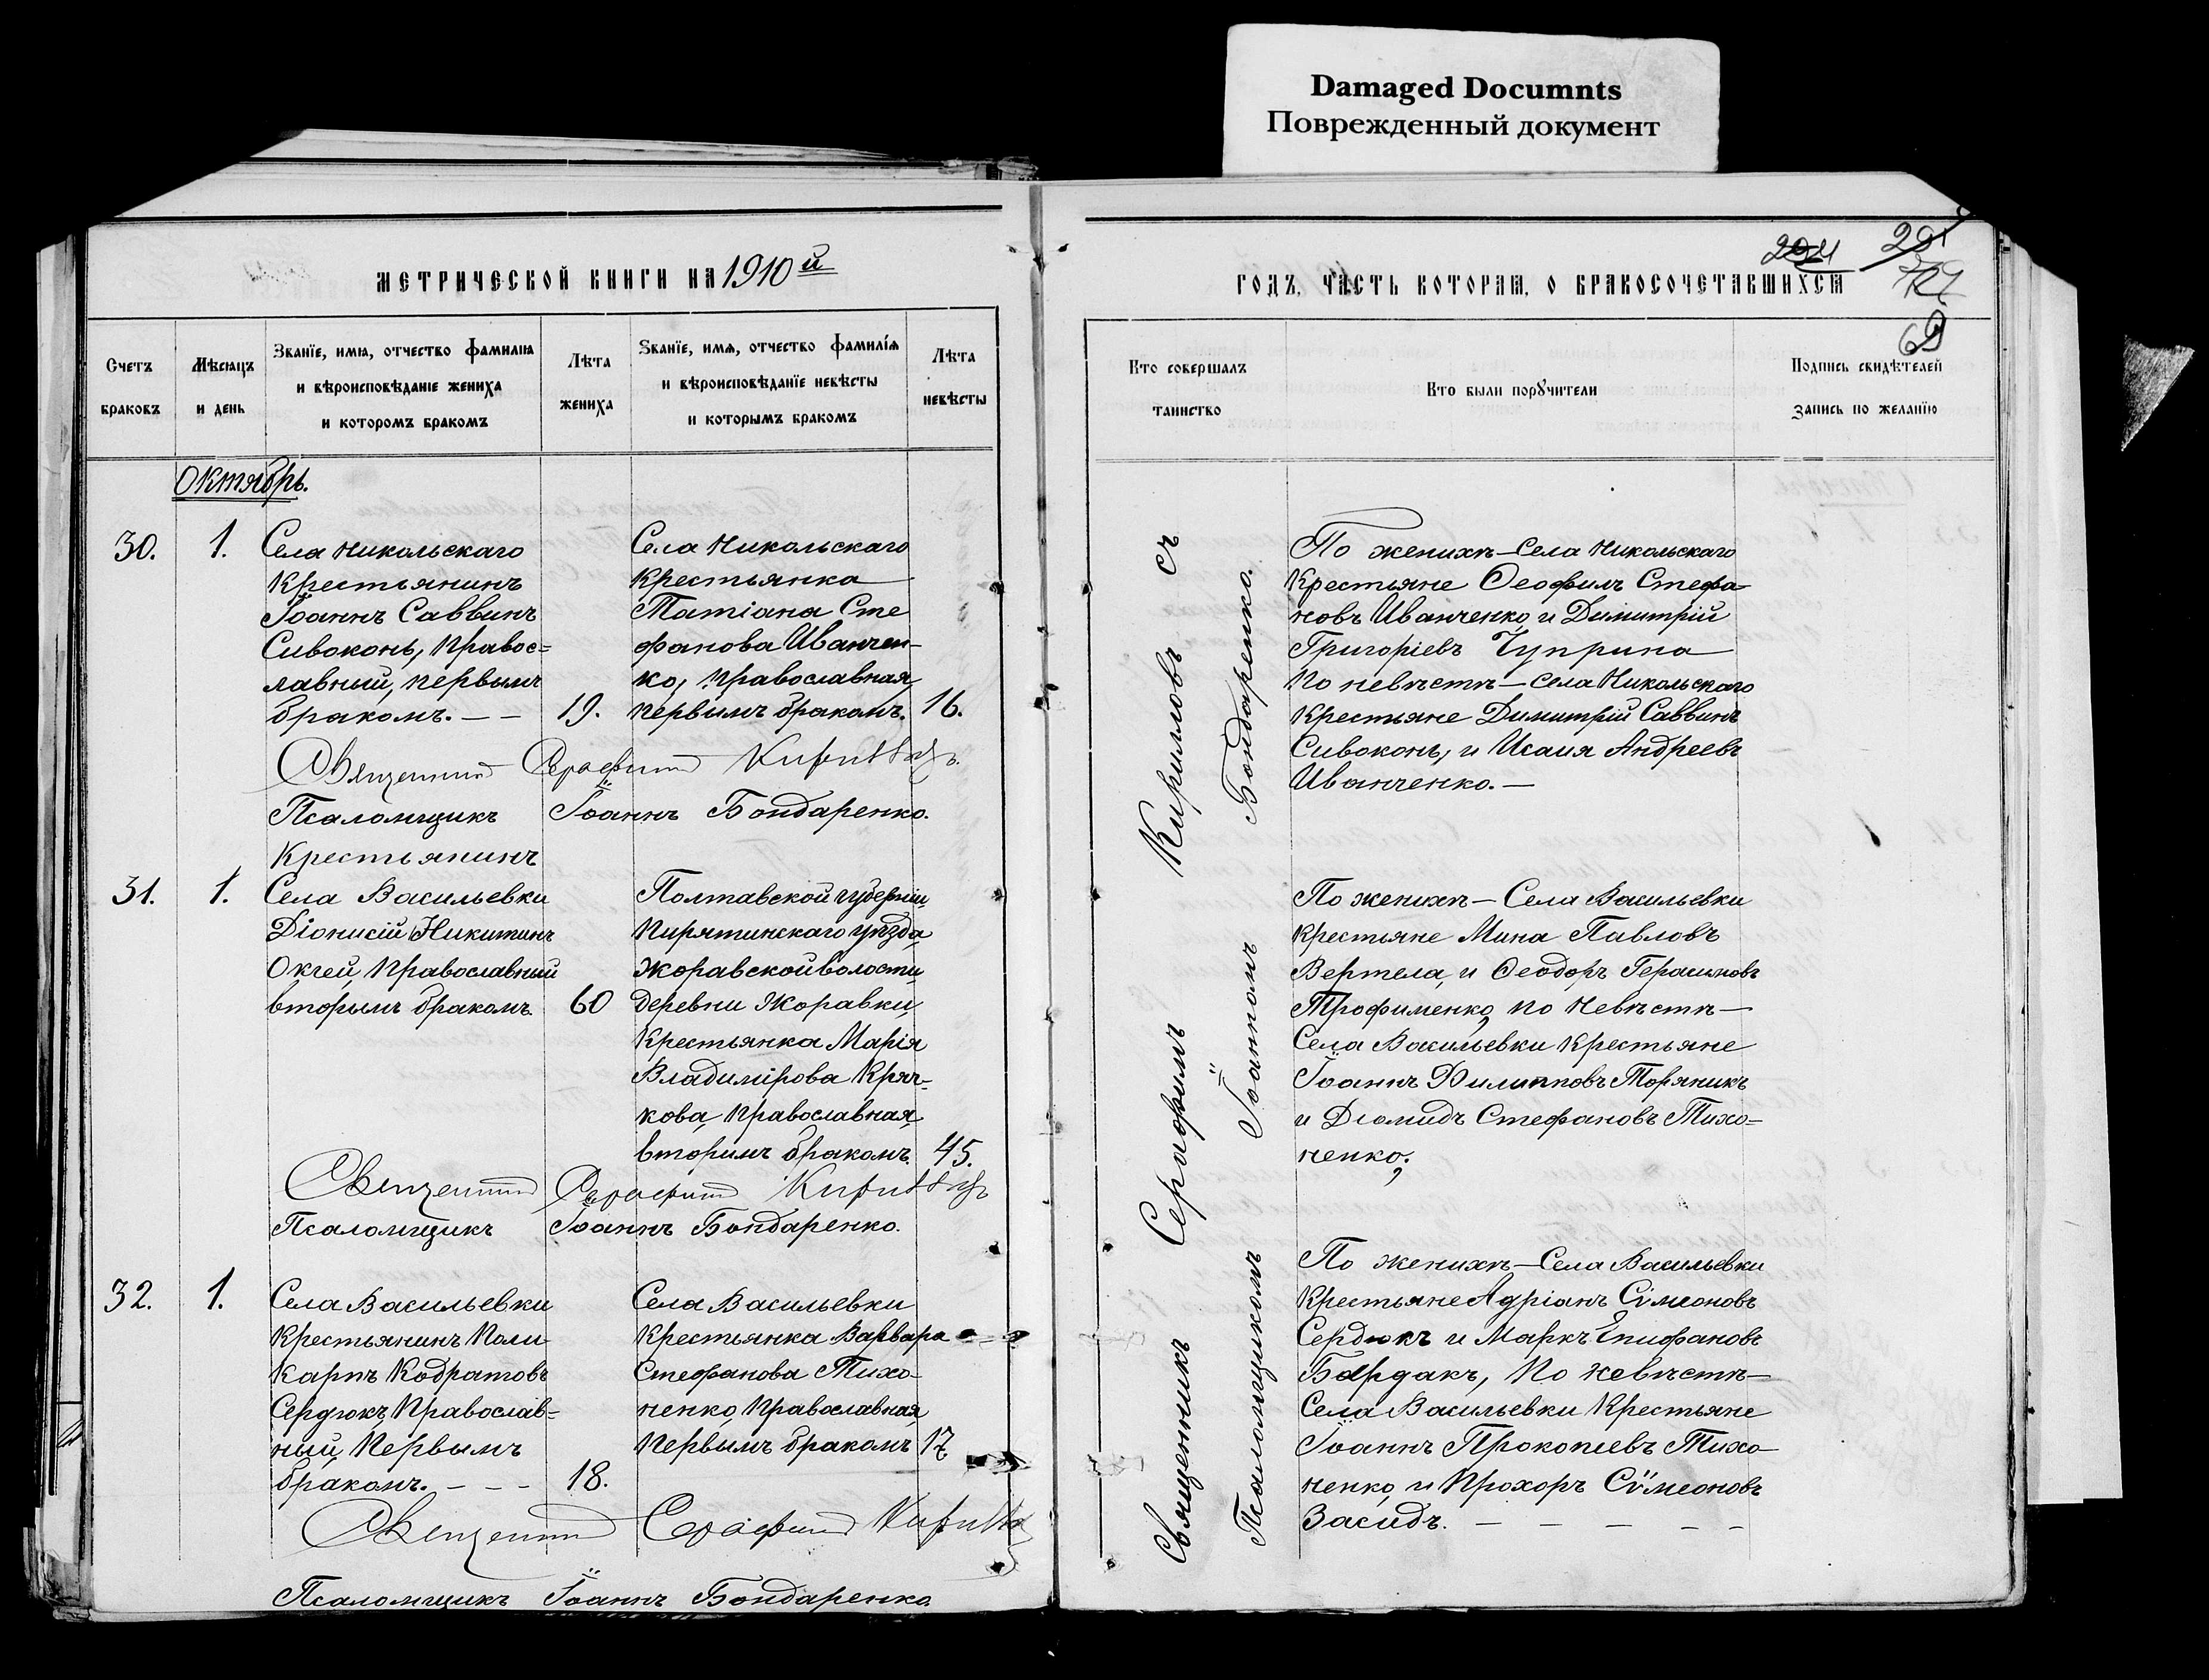 Damaged Documnts
Поврежденный документ
МЕТРИЧЕСКОЙ КНИГИ НА 1910й
Счетъ браковъ
Мѣсяцъ и день
Званїе, имѧ, отчество фамилїѧ
и вѣроисповѣданїе жениха
и которомъ бракомъ
Лѣта жениха
Званїе, имѧ, отчество фамилїѧ
и вѣроисповѣданїе невѣсты
и которымъ бракомъ
Лѣта невѣсты
Октябрь.
30.
1.
Села Никольскаго
Крестьянинъ
Іоаннъ Саввинъ
Сивоконь, Правос=
лавный, первымъ
бракомъ. — —
19.
Села Никольскаго
Крестьянка
Татіана Сте
фанова Иванчен-
ко, православная,
первымъ бракомъ.
16.
Священникъ Серафимъ Кирилловъ
Псаломщикъ Іоаннъ Бондаренко.
31.
1.
Крестьянинъ
Села Васильевки
Діонисій Никитинъ
Окгей, Православный
вторымъ бракомъ.
60
Полтавской губерніи,
Пирятинскаго уѣзда,
Жоравской волости,
деревни Жоравки,
Крестьянка Марія
Владимірова Кряч-
кова, Православная,
вторимъ бракомъ.
45.
Священникъ Серафимъ Кирилловъ
Псаломщикъ Іоаннъ Бондаренко.
32.
1.
Села Васильевки
Крестьянинъ Поли-
карпъ Кодратовъ
Сердюкъ, Православ=
ный, Первымъ
бракомъ. — — —
18.
Села Васильевки
Крестьянка Варвара
Стефанова Тихо-
ненко, Православная
Первымъ бракомъ
17
Священникъ Серафимъ Кирилловъ
Псаломщикъ Іоаннъ Бондаренко.
ГОДЪ, ЧАСТЬ ВТОРАѦ, О БРАКОСОЧЕТАВШИХСѦ
Кто совершалъ таинство
Кто были порꙋчители
Подпись свидѣтелей
запись по желанїю
Священникъ Серафимъ Кирилловъ съ
Псаломщикомъ Іоанномъ Бондаренко.
По женихѣ — Села Никольскаго
Крестьяне Ѳеофилъ Стефа=
новъ Иванченко, и Димитрій
Григоріевъ Чуприна
По невѣстѣ — села Никольскаго
Крестьяне Димитрій Саввинъ
Сивоконь, и Исаия Андреевъ
Иванченко. —
По женихѣ — Села Васильевки
крестьяне Мина Павловъ
Вертела, и Ѳеодоръ Герасимовъ
Трофименко, по Невѣстѣ —
Села Васильевки Крестьяне
Іоаннъ Филипповъ Торяникъ
и Діомидъ Стефановъ Тихо=
ненко.,
По женихѣ — Села Васильевки
Крестьяне Адріанъ Сѵмеоновъ
Сердюкъ и Маркъ Епифановъ
Бардакъ, По невѣстѣ —
Села Васильевки Крестьяне
Іоаннъ Прокопіевъ Тихо-
ненко, и Прохоръ Сѵмеоновъ
Засидъ. — — — — —